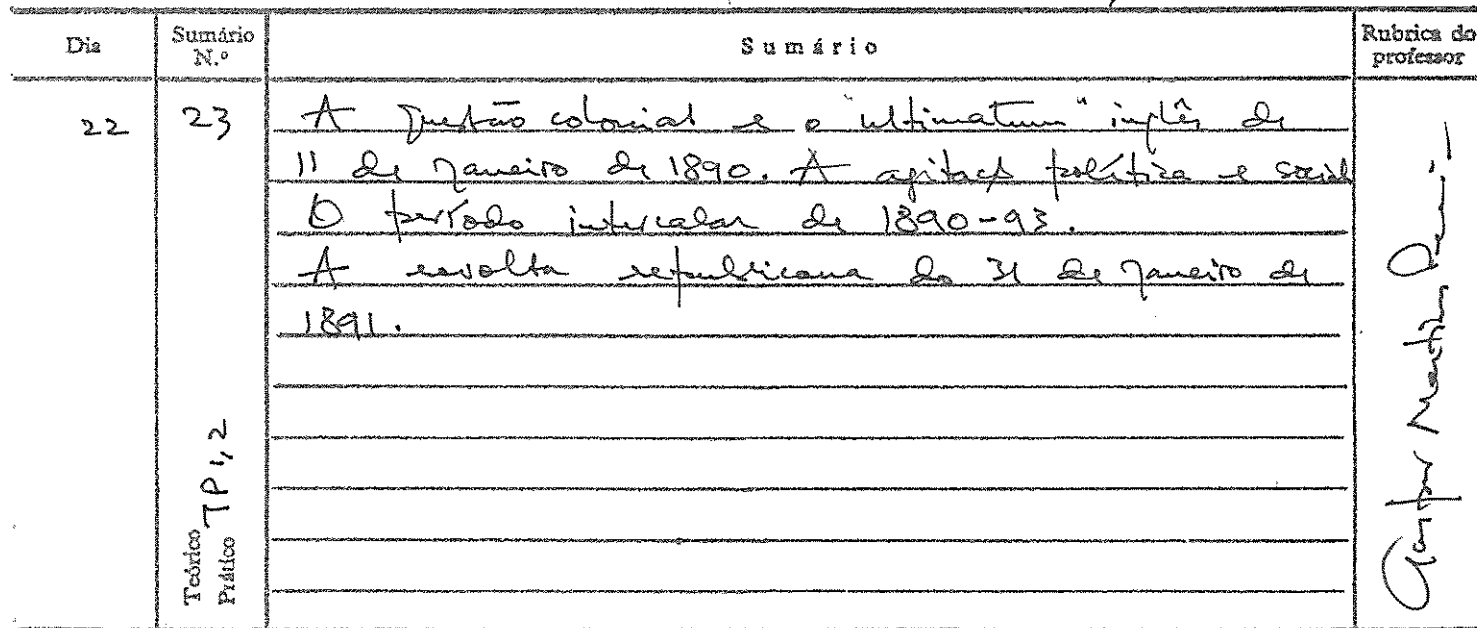 Dia
Sumário N.º
Sumário
Rubrica do professor
22
23
A questão colonial e o "ultimatum" inglês de
11 de Janeiro de 1890. A agitaç política e social
O período intercalar de 1890-93.
A revolta republicana do 31 de Janeiro de
1891.
Teórico
Prático TP1,2
Gaspar Martins Pereira